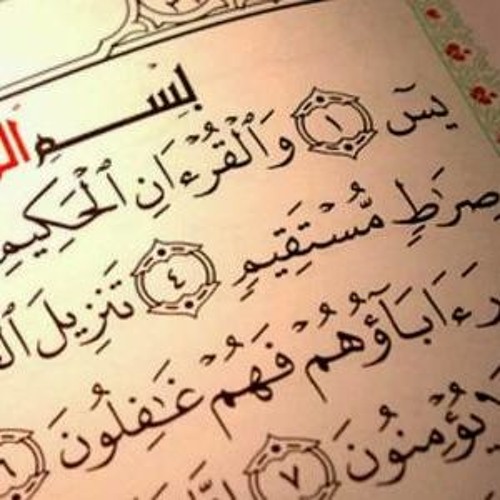 بِسْمِ
يسٓ ١ وَٱلْقُرْءَانِ ٱلْحَكِيمِ
صِرَٰطٍ مُّسْتَقِيمٍ ٤ تَنزِيلَ
ءَابَآؤُهُمْ فَهُمْ غَٰفِلُونَ ٦
يُؤْمِنُونَ ٧